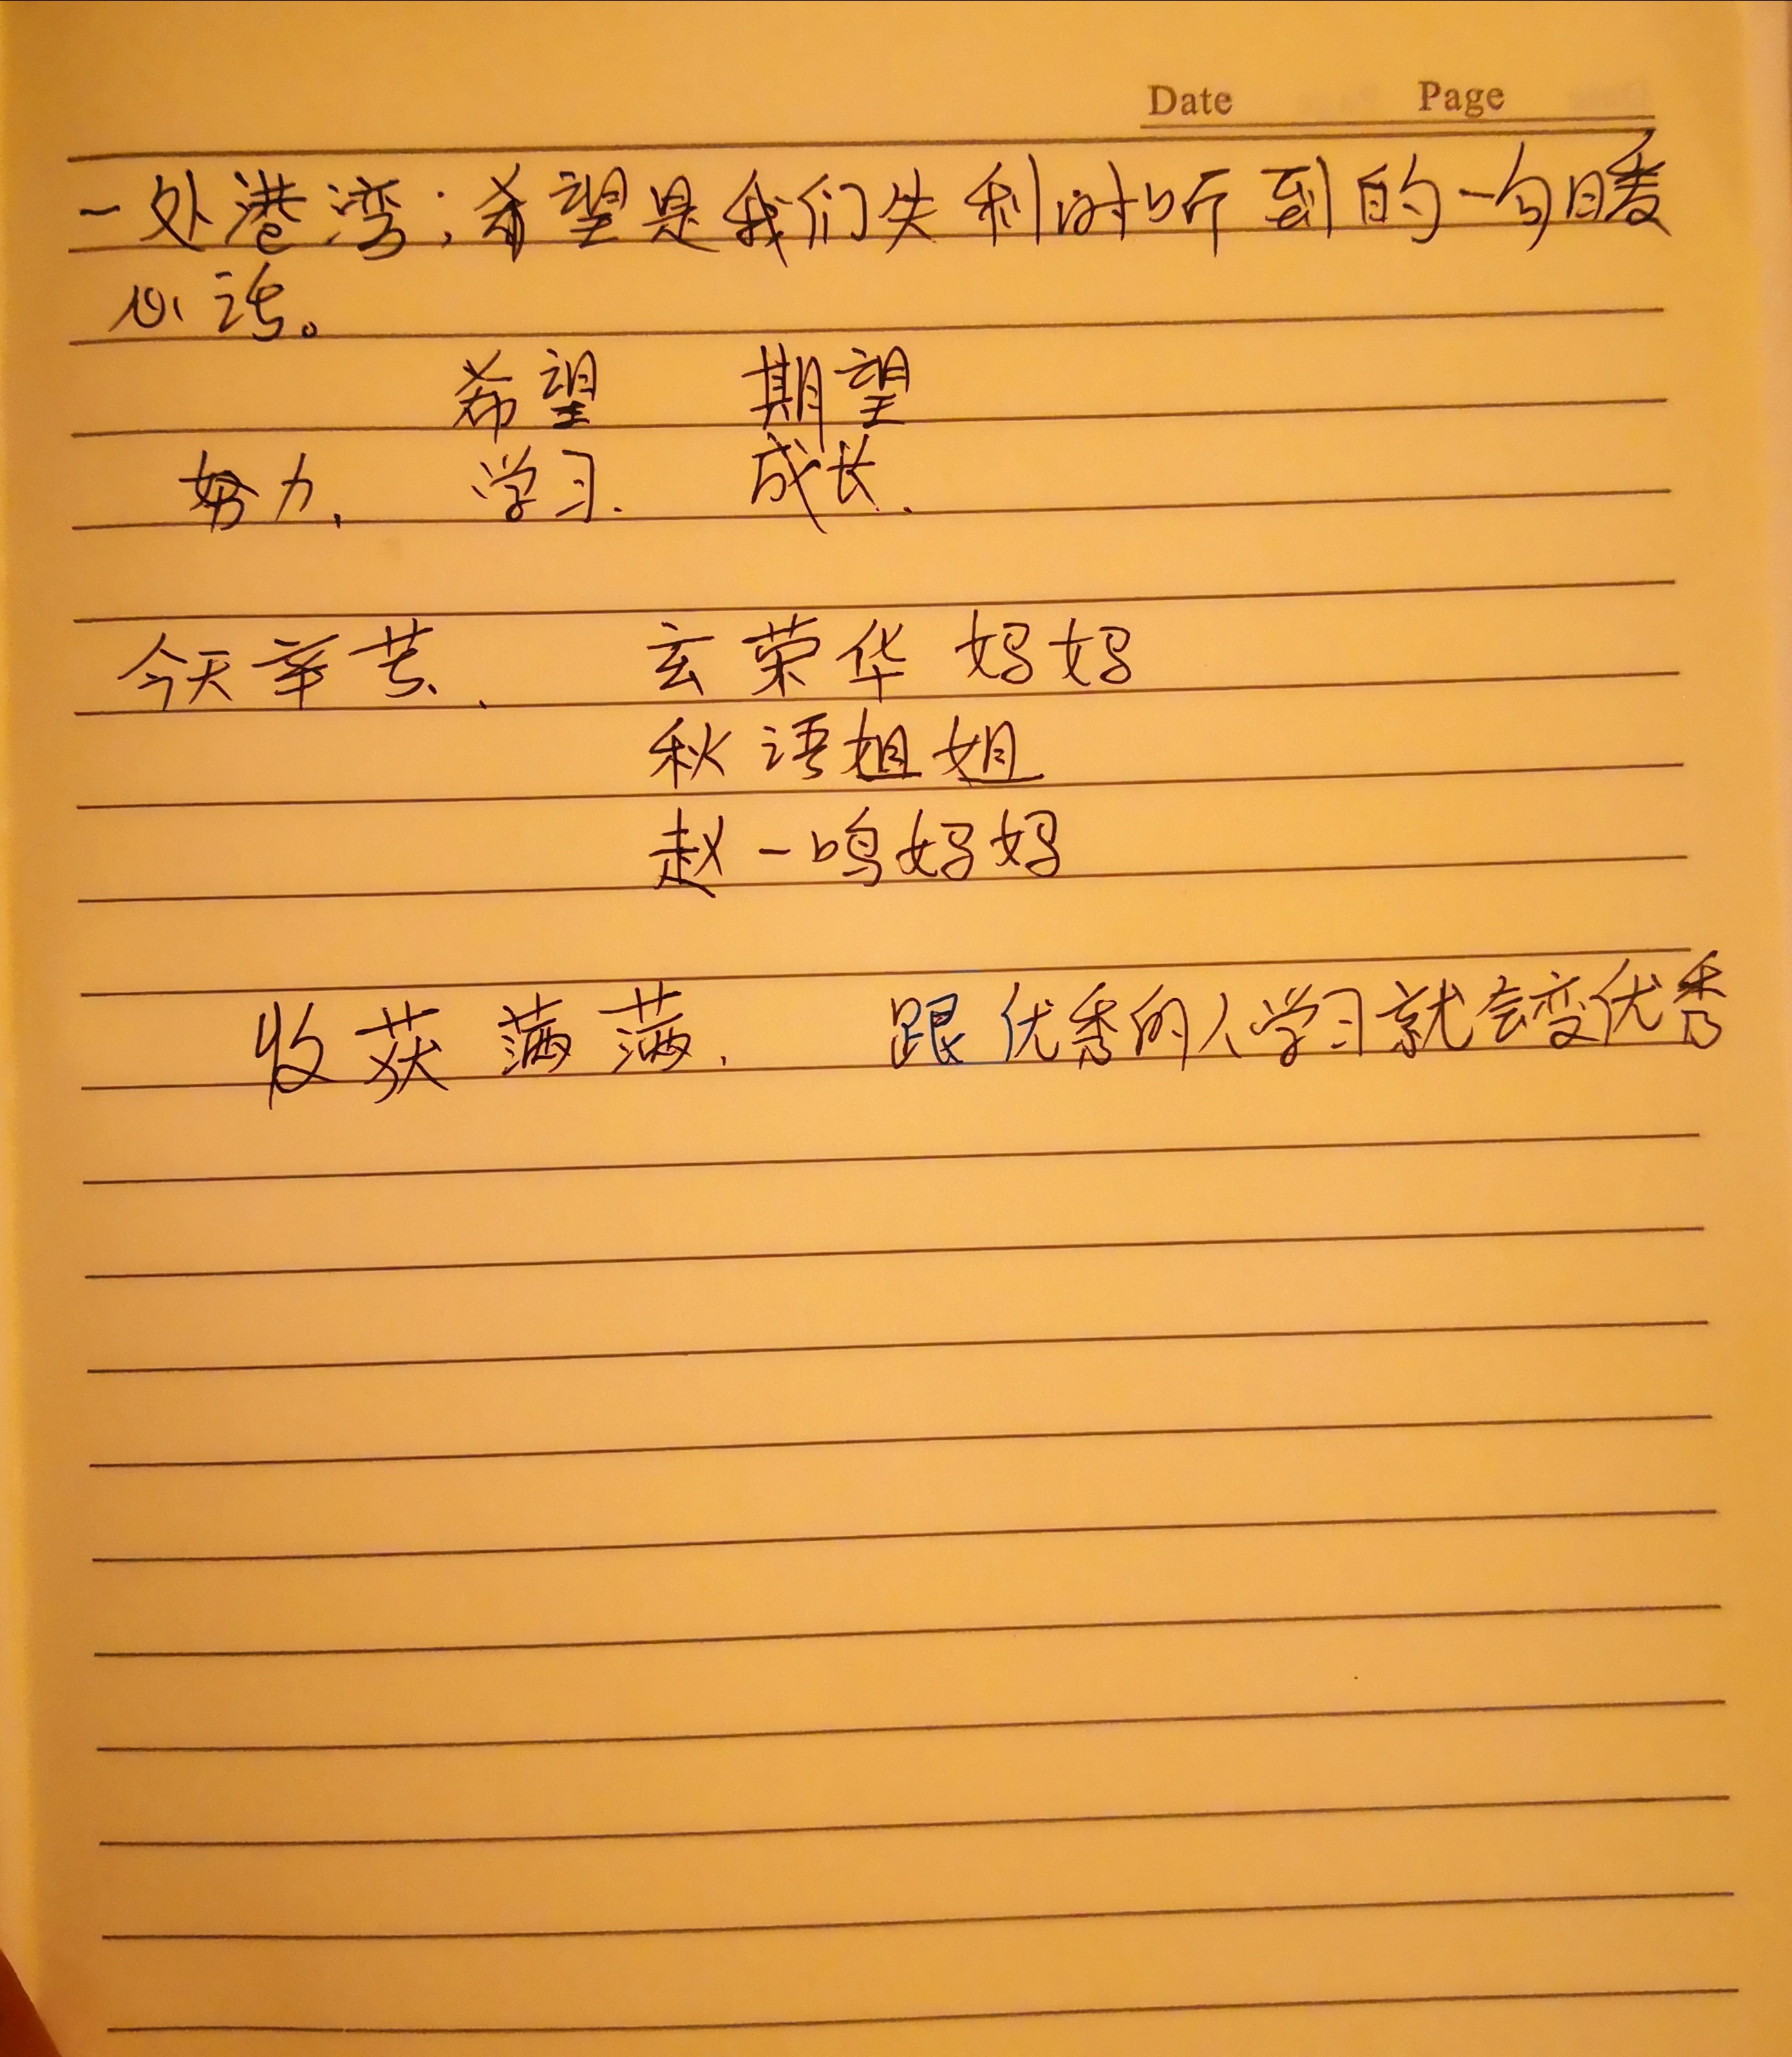 Date Page
一处港湾；希望是我们失利时听到的一句暖
心话。
希望 期望
努力. 学习. 成长.
今天辛苦. 玄荣华妈妈
秋语姐姐
赵一鸣妈妈
收获满满. 跟优秀的人学习就会变优秀